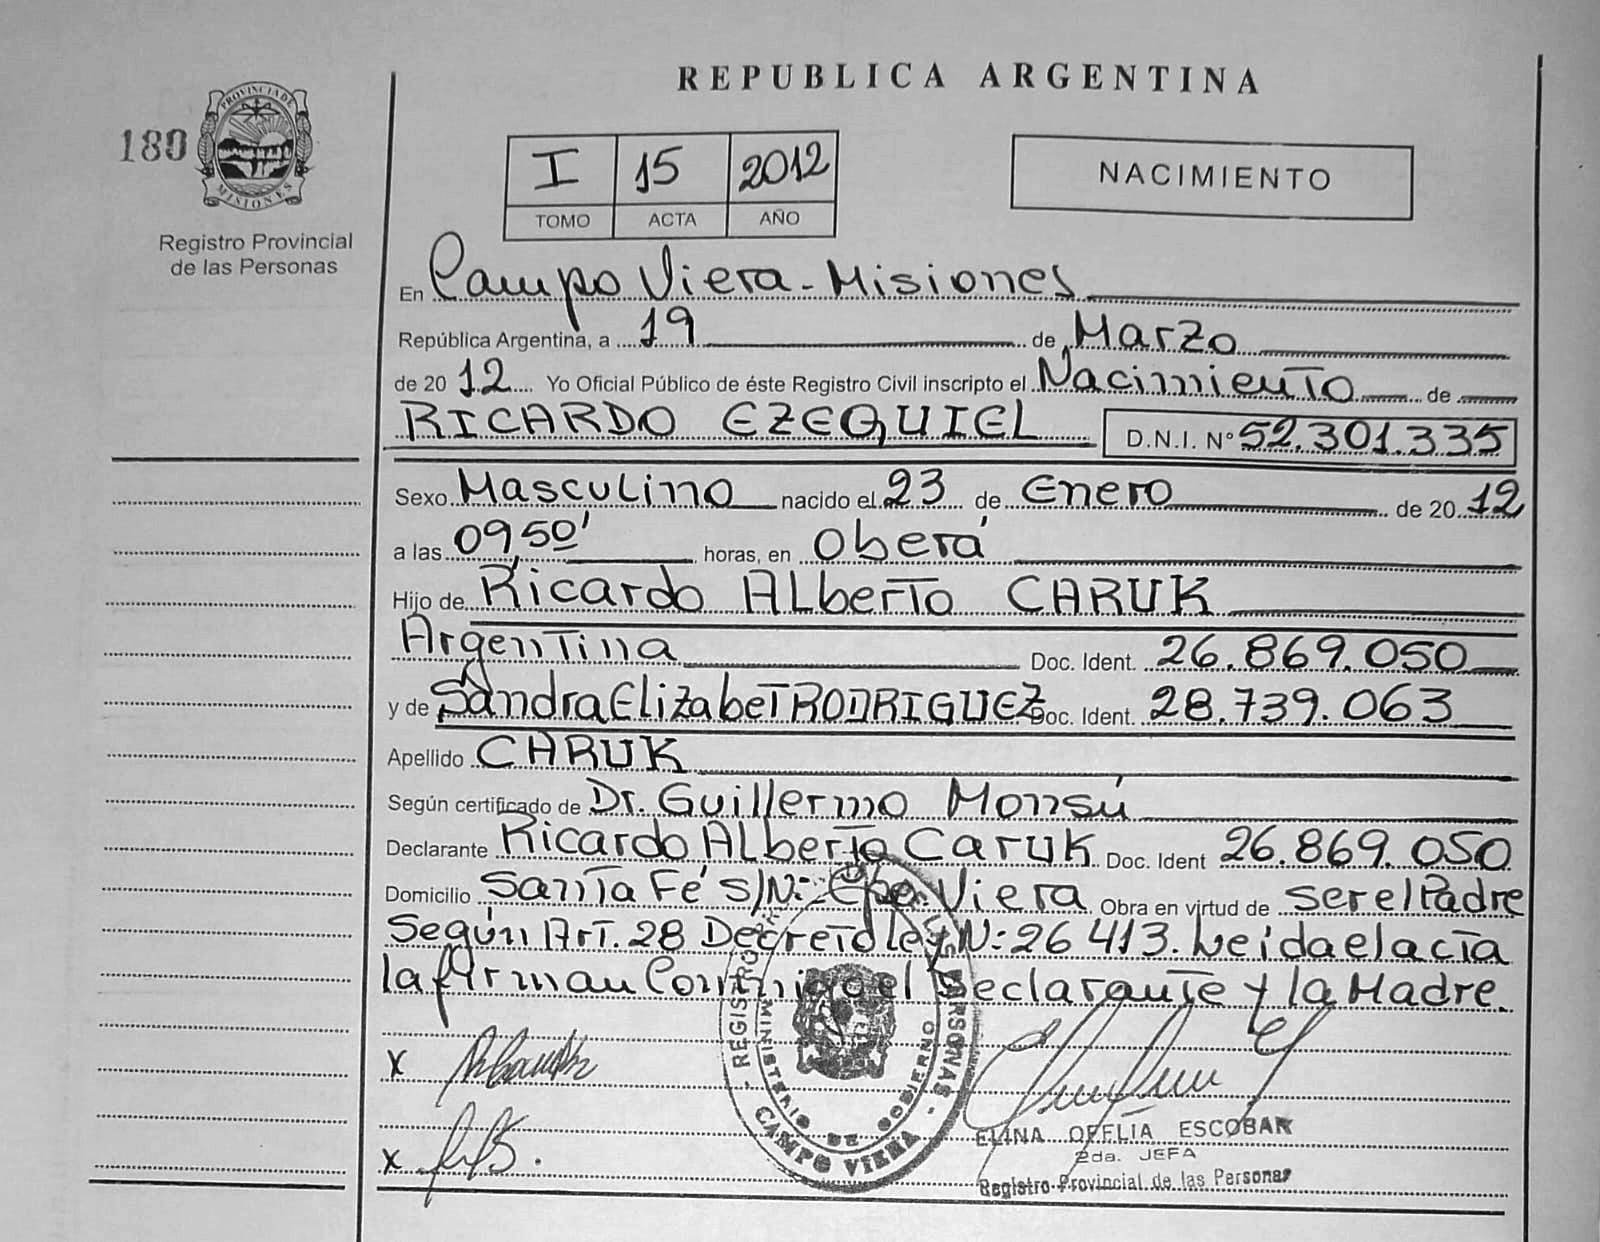 REPUBLICA ARGENTINA
180
PROVINCIA DE
MISIONES
Registro Provincial
de las Personas
I 15 2012
TOMO ACTA AÑO
NACIMIENTO
En Campo Viera - Misiones
República Argentina, a 19 de Marzo
de 2012 Yo Oficial Público de éste Registro Civil inscripto el Nacimiento de
RICARDO EZEQUIEL D.N.I. Nº 52.301.335
Sexo Masculino nacido el 23 de Enero de 2012
a las 09,50' horas, en Oberá
Hijo de Ricardo Alberto CARUK
Argentina Doc. Ident. 26.869.050
y de Sandra Elizabet RODRIGUEZ Doc. Ident. 28.739.063
Apellido CARUK
Según certificado de Dr. Guillermo Monsú
Declarante Ricardo Alberto Caruk Doc. Ident 26.869.050
Domicilio Santa Fé S/N: Cpo. Viera Obra en virtud de ser el Padre
Según Art. 28 Decreto ley N: 26413. Leida el acta
la firman Conmigo el Declarante y la Madre.
X
X
REGISTRO PERSONAS
MINISTERIO DE GOBIERNO
CAMPO VIERA
ELINA OFELIA ESCOBAR
2da. JEFA
Registro Provincial de las Personas